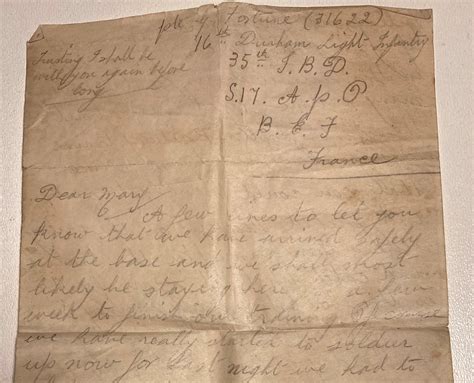 Pte J Fortune (31622)
16th Durham Light Infantry
35th I.B.D.
S.17. A.P.O
B.E.F
France
Trusting I shall be
with you again before
long
Dear Mary
A few lines to let you
know that we have arrived safely
at the base and we shall most
likely be staying here a few
week to finish our training Of course
we have really started to soldier
up now for last night we had to